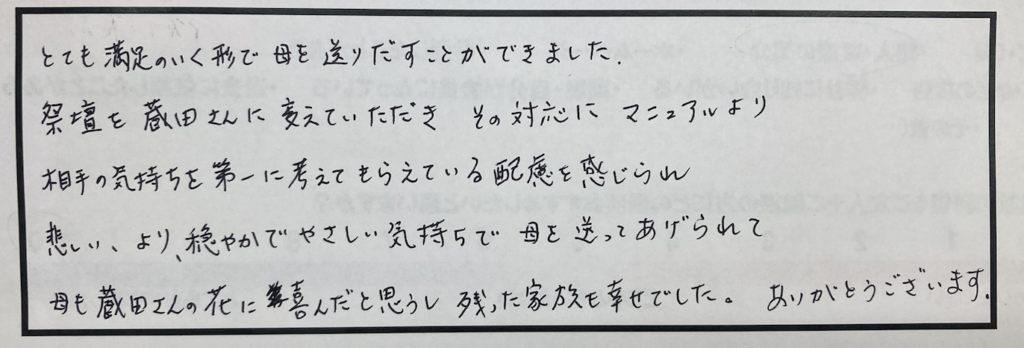 とても満足のいく形で母を送りだすことができました。
祭壇を蔵田さんに変えていただき その対応に マニュアルより
相手の気持ちを第一に考えてもらえている配慮を感じられ
悲しい、より、穏やかでやさしい気持ちで 母を送ってあげられて
母も蔵田さんの花に喜んだと思うし 残った家族も幸せでした。 ありがとうございます。